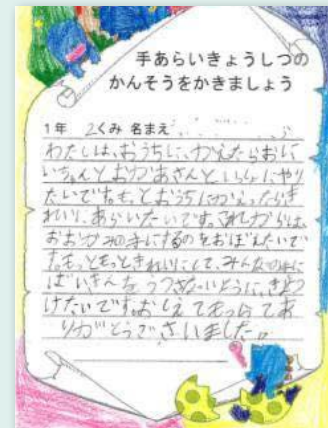 手あらいきょうしつの
かんそうをかきましょう
1年 2くみ 名まえ
わたしは、おうちに、かえたらおに
いちゃんとおかあさんといっしょにやり
たいです。もとおうちにかえったらき
れいに、あらいたいです。これからは、
おおかみの手にするのをおぼえたいで
す。もっともっときれいにして、みんなの手に
ばいきんをうつさないように、きおつ
けたいです。おしえてもらってあ
りがとうございました。